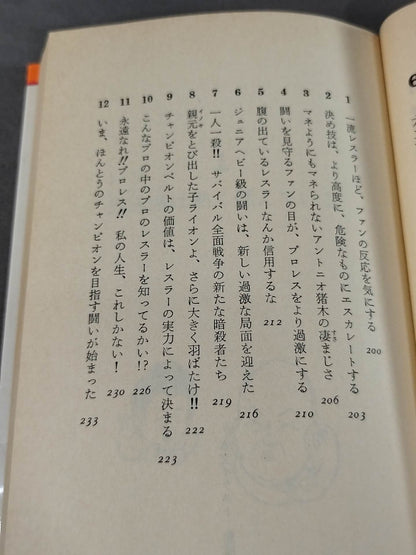 1 一流レスラーほど、ファンの反応を気にする 200
2 決め技は、より高度に、危険なものにエスカレートする 203
3 マネようにもマネられないアントニオ猪木の凄まじさ 206
4 闘いを見守るファンの目が、プロレスをより過激にする 210
5 腹の出ているレスラーなんか信用するな 212
6 ジュニアヘビー級の闘いは、新しい過激な局面を迎えた 216
7 一人一殺!! サバイバル全面戦争の新たな暗殺者たち 219
8 親元をとび出した子ライオンよ、さらに大きく羽ばたけ!! 222
9 チャンピオンベルトの価値は、レスラーの実力によって決まる 223
10 こんなプロの中のプロのレスラーを知ってるかい!? 226
11 永遠なれ!! プロレス!! 私の人生、これしかない! 230
12 いま、ほんとうのチャンピオンを目指す闘いが始まった 233